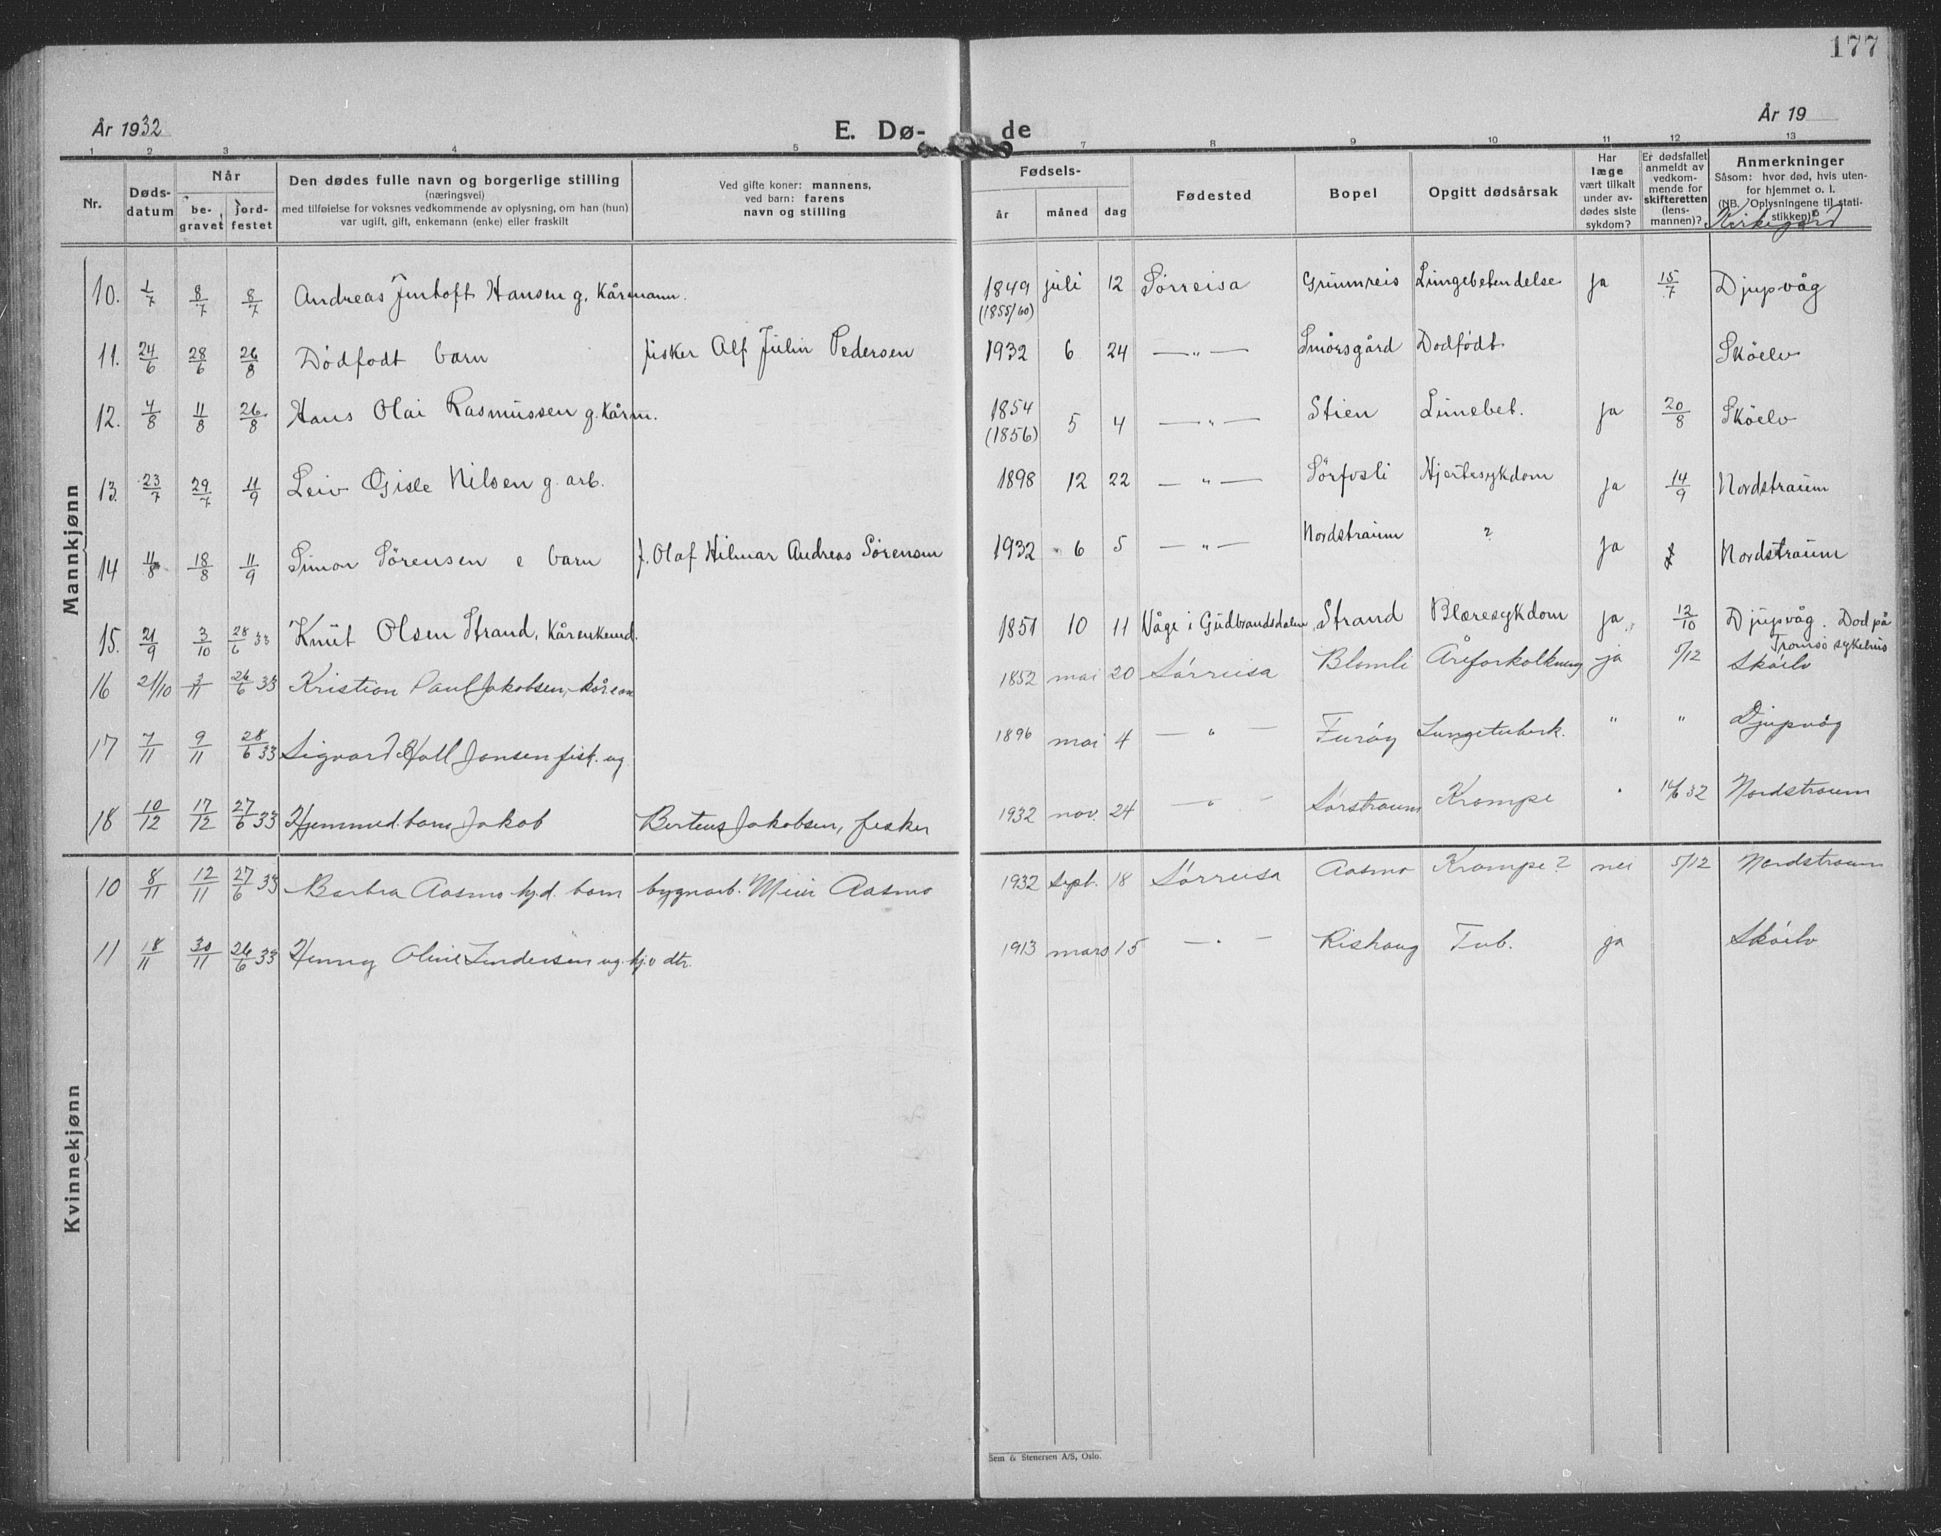 177
År 1932
E. Dø-
de
År 19
1 2 3 4 5 7 8 9 10 11 12 13
Nr.
Døds-
datum
Når
be-
gravet
jord-
festet
Den dødes fulle navn og borgerlige stilling
(næringsvei)
med tilføielse for voksnes vedkommende av oplysning, om han (hun)
var ugift, gift, enkemann (enke) eller fraskilt
Ved gifte koner: mannens,
ved barn: farens
navn og stilling
Fødsels-
år måned dag
Fødested
Bopel
Opgitt dødsårsak
Har
læge
vært tilkalt
under av-
dødes siste
sykdom?
Er dødsfallet
anmeldt av
vedkom-
mende for
skifteretten
(lens-
mannen)?
Anmerkninger
Såsom: hvor død, hvis uten-
for hjemmet o. l.
(NB. Oplysningene til stati-
stikken)
Kirkegård
Mannkjønn
10. 1/7 8/7 8/7 Andreas Jentoft Hansen g. Kårmann. 1849 (1855/60) juli 12 Sørreisa Grunnreis Lungebetendelse ja 15/7 Djupvåg
11. 24/6 28/6 26/8 Dødfødt barn fisker Alf Julin Pedersen 1932 6 24 —„— Smørsgård Dødfødt Skøelv
12. 4/8 11/8 26/8 Hans Olai Rasmussen g. Kårm. 1854 (1856) 5 4 —„— Stien Lunebet. ja 20/8 Skøelv
13. 23/7 29/7 11/9 Leiv Gisle Nilsen g. arb. 1898 12 22 —„— Sørfosli Hjertesykdom ja 14/9 Nordstraum
14 11/8 18/8 11/9 Simon Sørensen e barn f. Olaf Hilmar Andreas Sørensen 1932 6 5 —„— Nordstraum ? ja Nordstraum
15. 21/9 3/10 28/6 33 Knut Olsen Strand, Kårenkemd. 1851 10 11 Våge i Gudbrandsdalen Strand Blæresykdom ja. 12/10 Djupvåg. Død på
Tromsø sykehus
16 21/10 3/11 26/6 33 Kristian Paul Jakobsen, kårem 1852 mai 20 Sørreisa Blomli Åreforkalkning ja 5/12 Skøelv
17 7/11 9/11 28/6 33 Sigvard Hall Jensen fisk. ug. 1896 mai 4 —„— Furøy Lungetuberk. „ „ Djupvåg
18 10/12 17/12 27/6 33 Hjemmed. barn Jakob Berteus Jakobsen, fisker 1932 nov. 24 —„— Sørstraum Krampe „ 14/6 32 Nordstraum
Kvinnekjønn
10 8/11 12/11 27/6 33 Barbra Aasmo hj.d. barn bygnarb. Meier Aasmo 1932 sept. 18 Sørreisa Aasmo Krampe? nei 5/12 Nordstraum
11 18/11 30/11 26/6 33 Henny Oline Lindersen ug. hj.v dtr. 1913 mars 15 —„— Rishaug Tub. ja Skøelv
Sem & Stenersen A/S, Oslo.